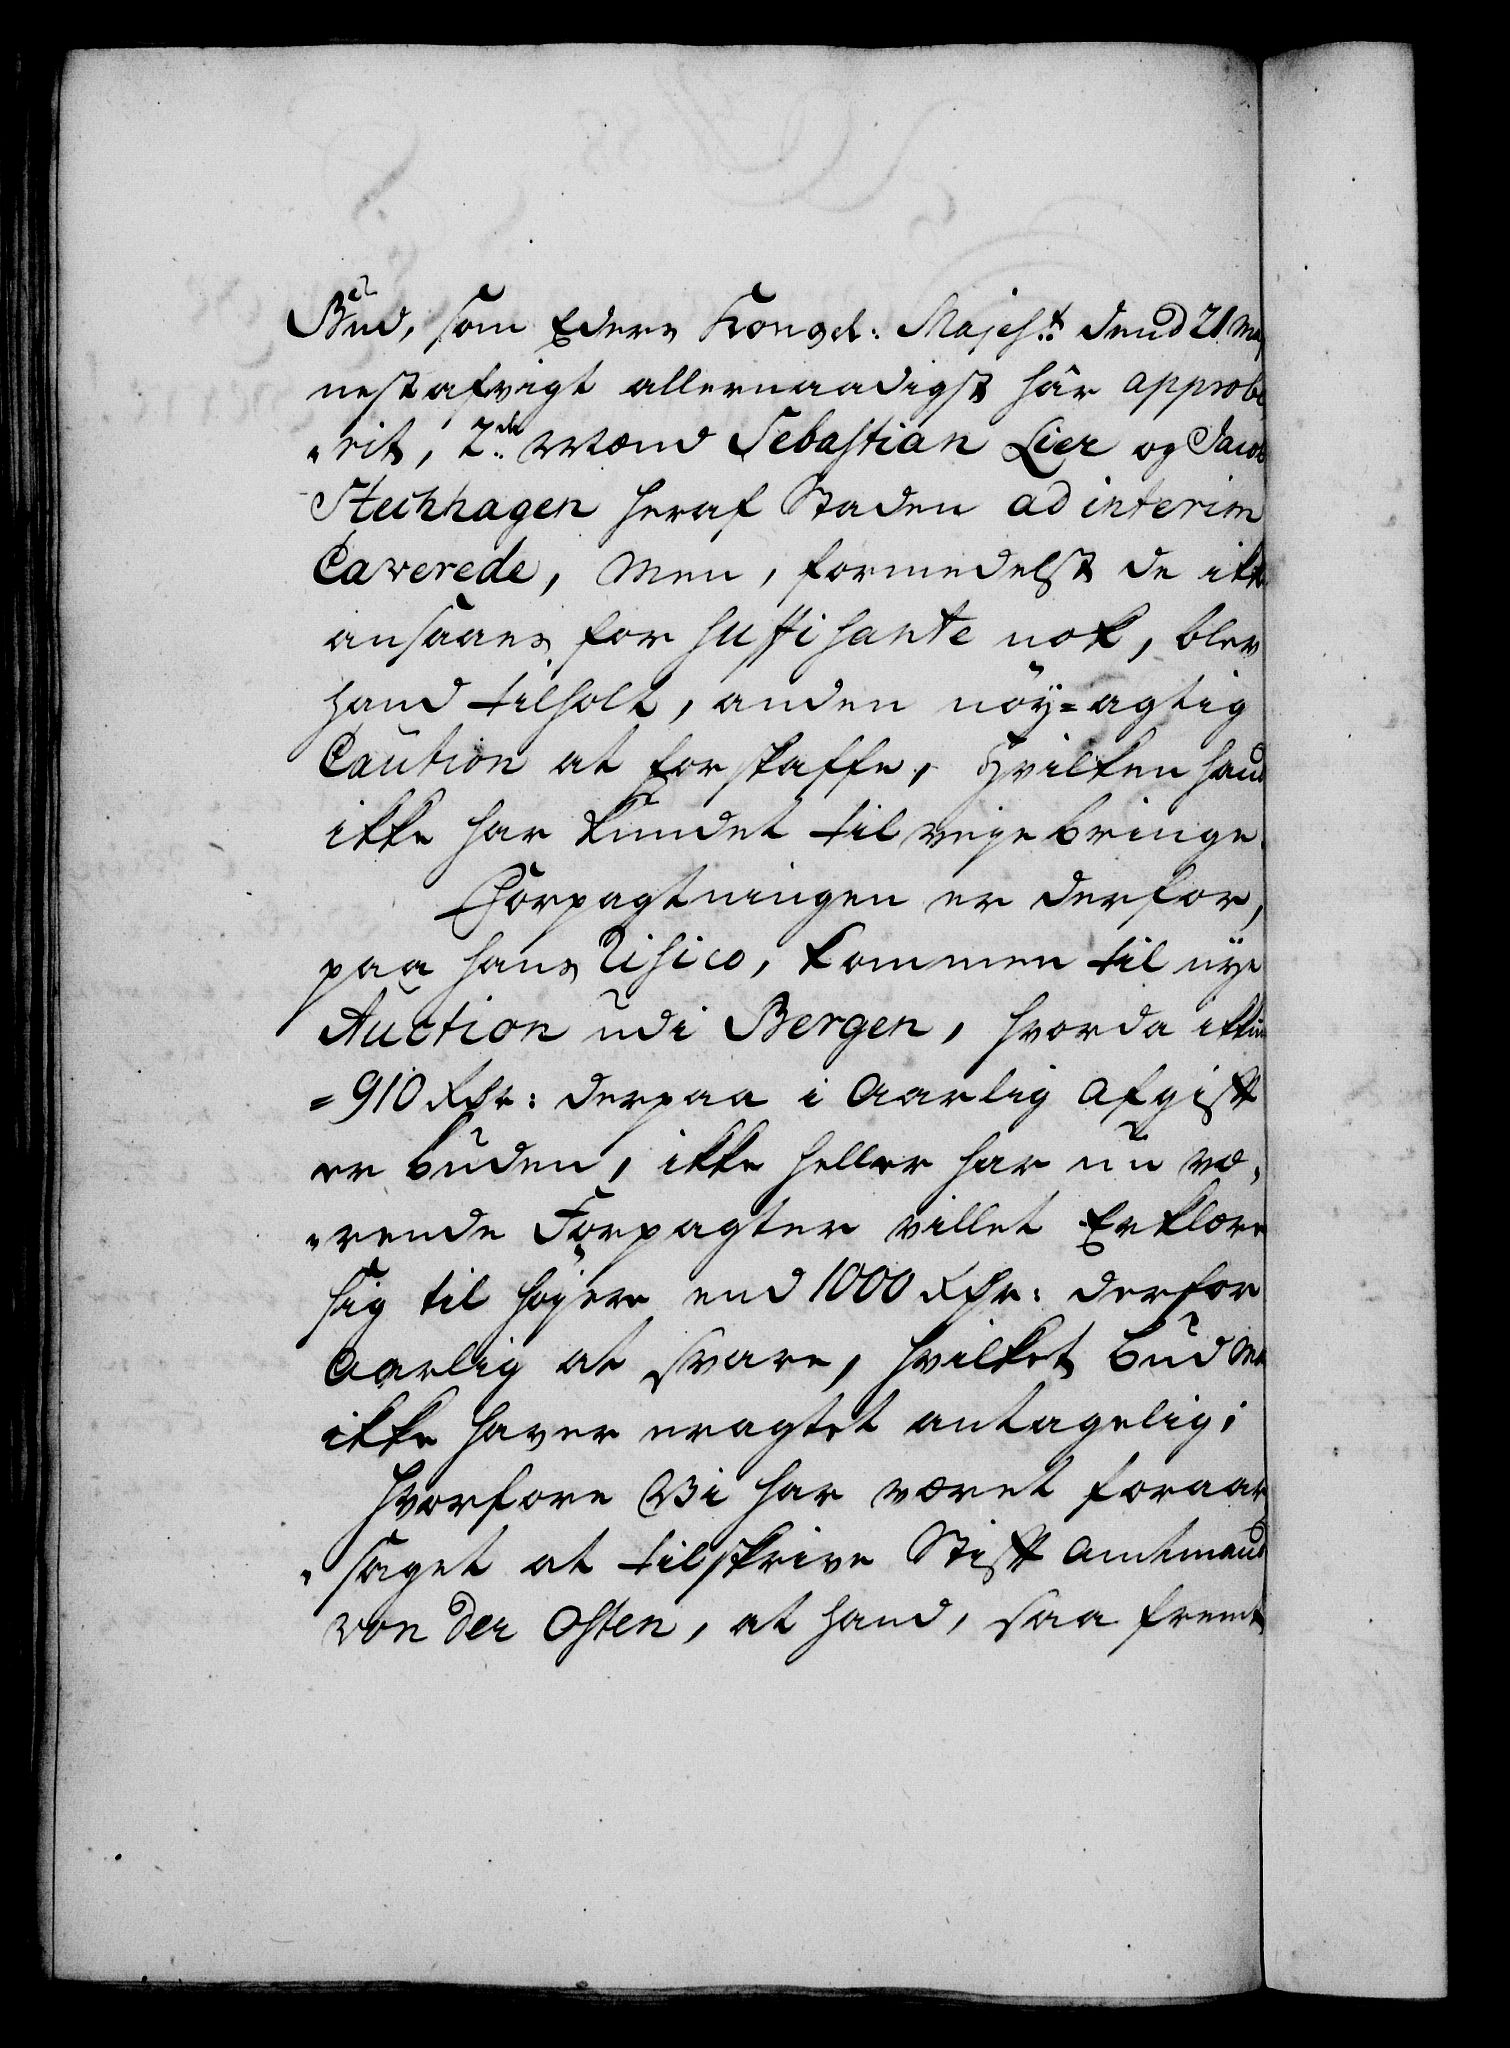 Bud, som Eders Kongel: Majest:t dend 21 Maj
nestafvigt allernaadigst har approbe,
„rit, 2de Mænd Sebastian Lier og Jacob
Stechhagen heraf Staden ad interim
Caverede, men, formedelst de ikke
ansaaes for suffisante nok, blev
hand tilholt, anden nöy=agtig
Caution at forskaffe, hvilken hand
ikke har kundet tilvejebringe.
Forpagtningen er derfor,
paa hans Risico, kommen til nye
Auction udi Bergen, hvorda ikkun
=910 Rdr: derpaa i aarlig afgift
er buden, ikke heller har nu væ,
„rende Forpagter villet Erklære
sig til højere end 1000 Rdr: derfor
aarlig at svare, hvilket bud
ikke haver eragtet antagelig;
Hvorfore Vi har været foraar,
„saget at tilskrive Stift amtmand
von der Osten, at hand, saa fremt